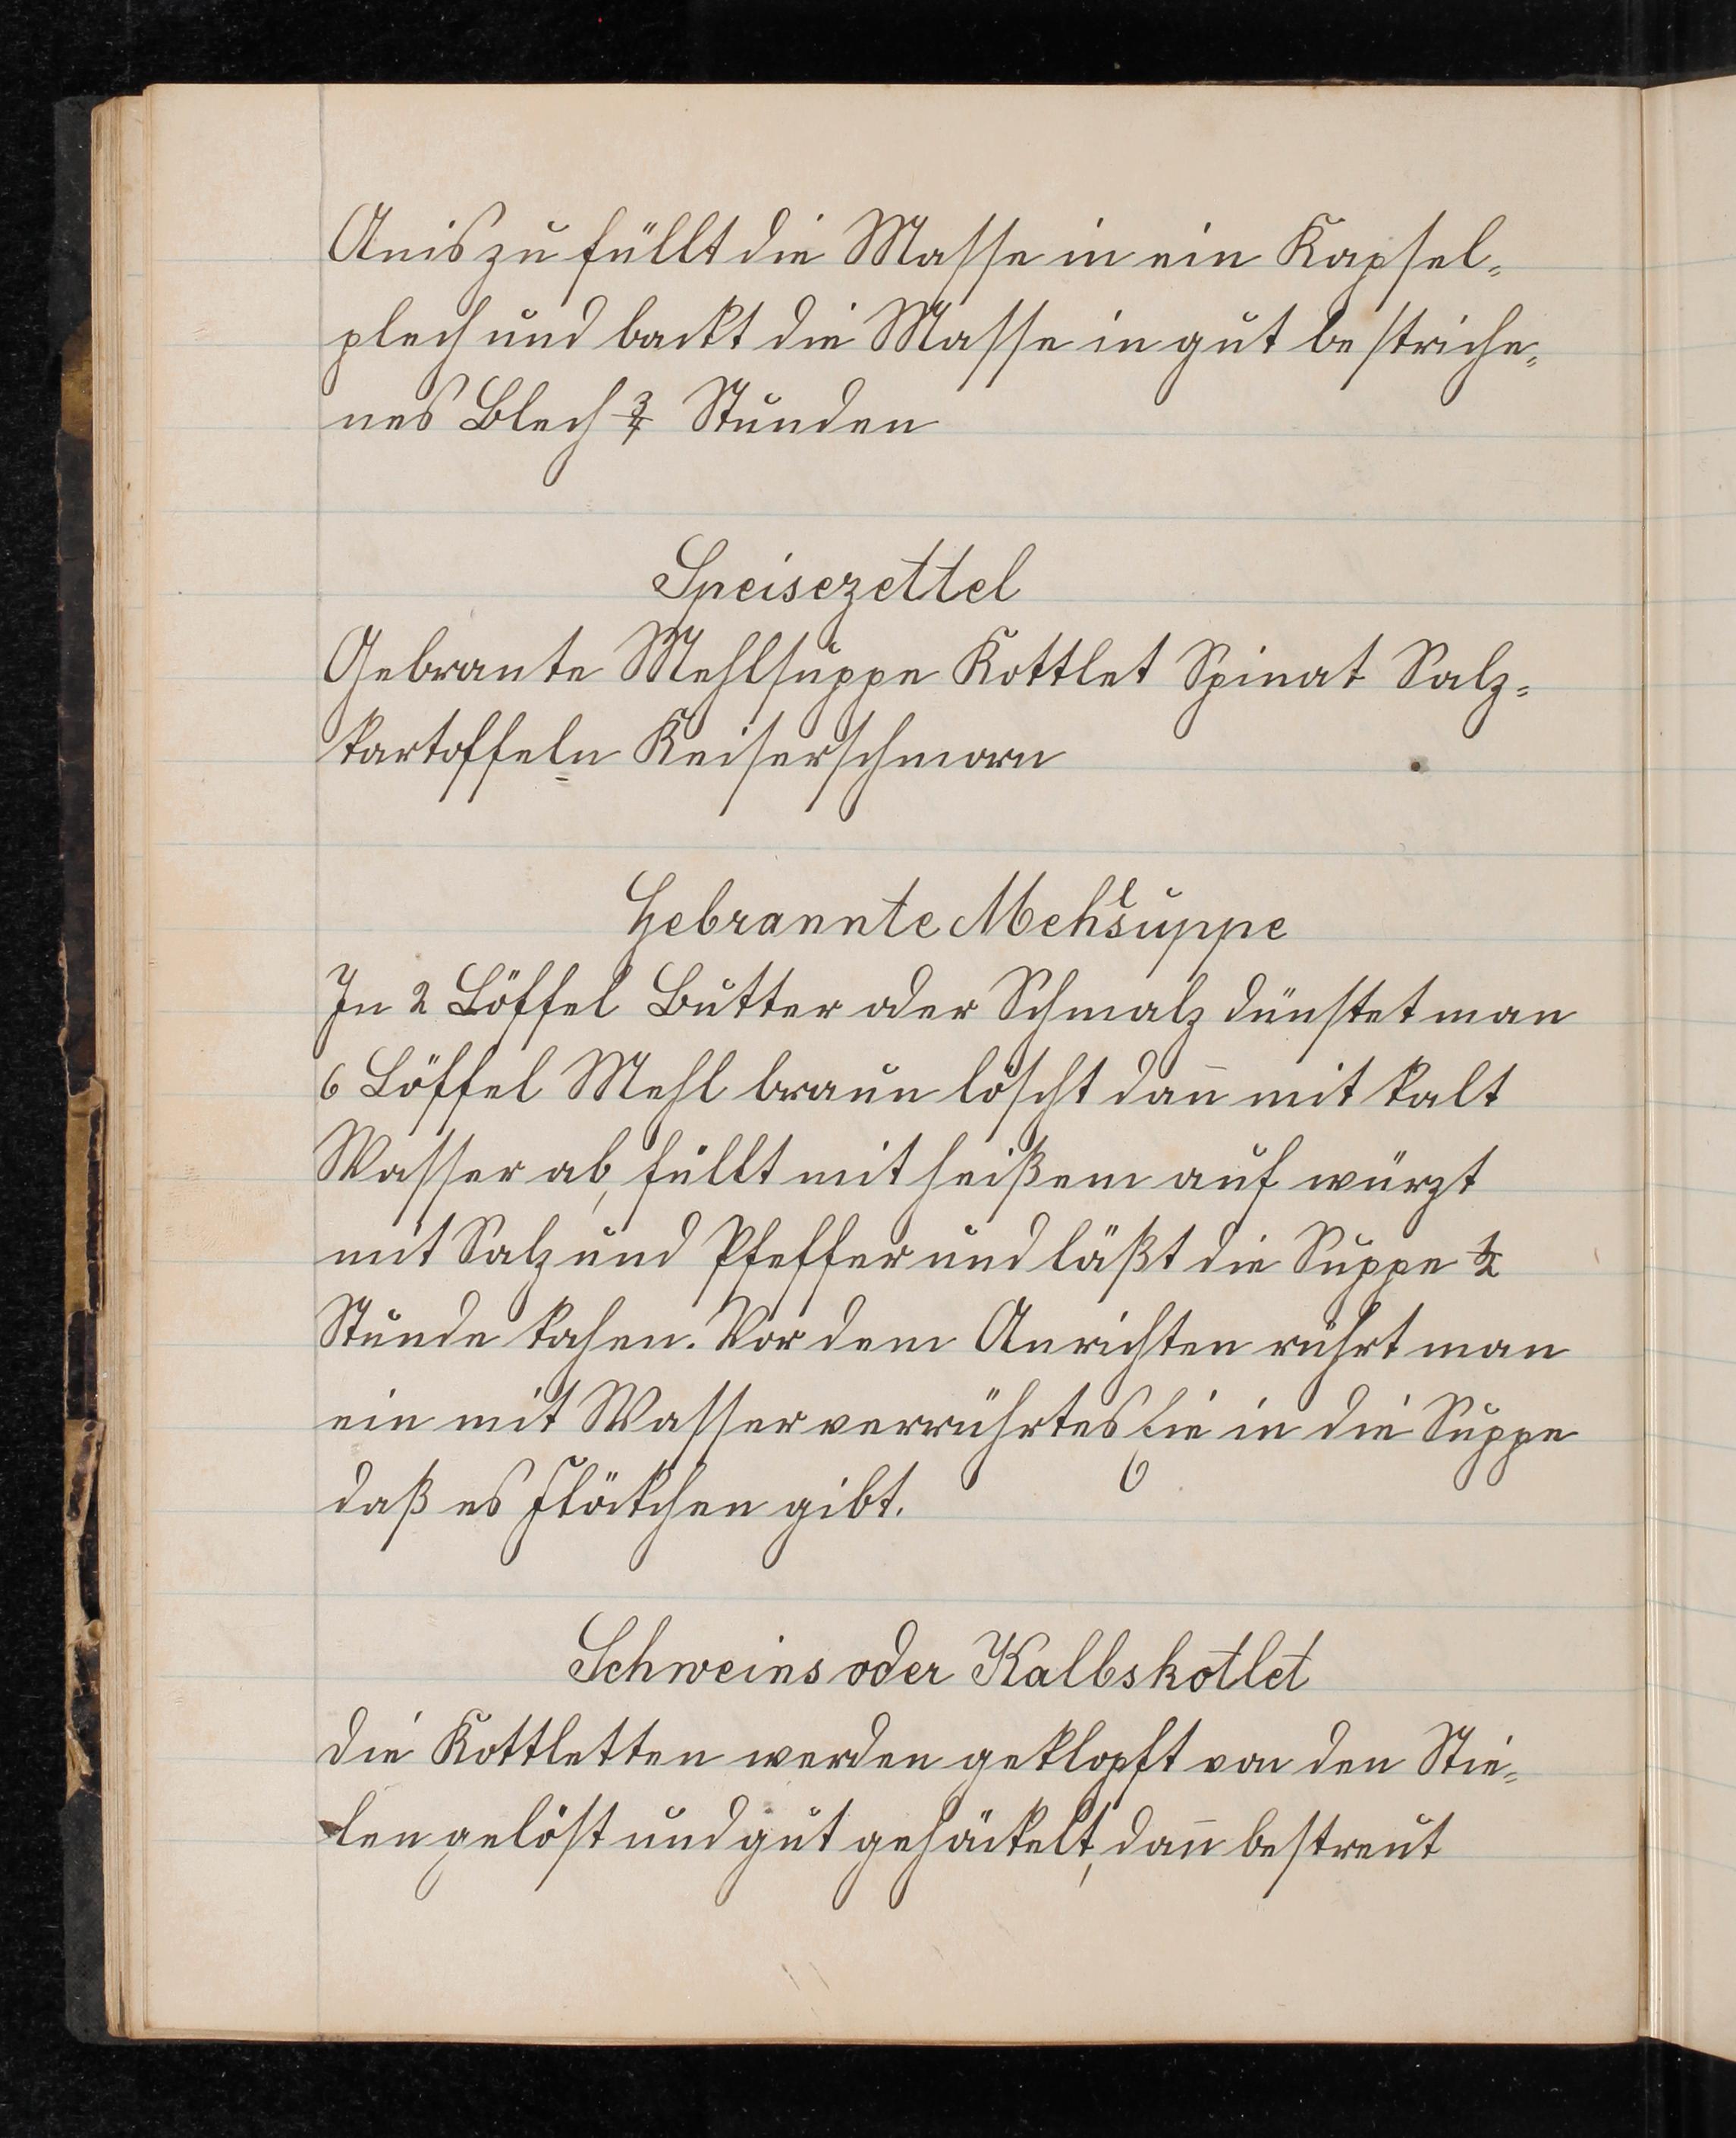 Anis zu füllt die Masse in ein Kapsel=
plech und backt die Masse in gut bestriche=
nes Blech ¾ Stunden
Speisezettel
Gebrante Mehlsuppe Kottlet Spinat Salz=
kartoffeln Keiserschmorn
Gebrannte Mehlsuppe
In 2 Löffel Butter oder Schmalz dünstet man
6 Löffel Mehl braun löscht dan̄ mit kalt
Wasser ab, füllt mit heißem auf würzt
mit Salz und Pfeffer und läßt die Suppe ½
Stunde kochen. Vor dem Anrichten rührt man
ein mit Wasser verrührtes Ei in die Suppe
daß es Flöckchen gibt.
Schweins oder Kalbskotlet
Die Kottletten werden geklopft von den Stie=
len gelöst und gut gehäckelt, dan̄ bestreut